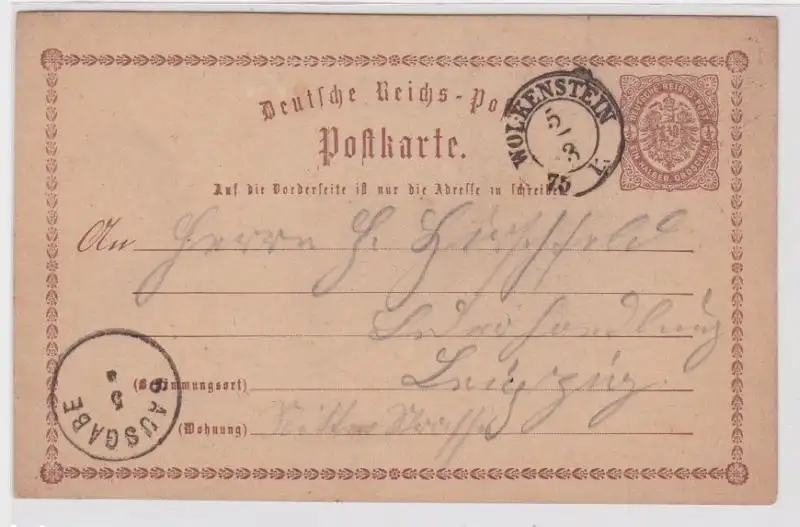 Deutsche Reichs-Po
Postkarte.
DEUTSCHE REICHS-POST
EIN HALBER GROSCHEN
WOLKENSTEIN
5
3
75
Auf die Vorderseite ist nur die Adresse zu schreiben
An Herrn H. Hirschfeld
Lederhandlung
(Bestimmungsort) Leipzig.
(Wohnung) Ritter Straße
AUSGABE
5